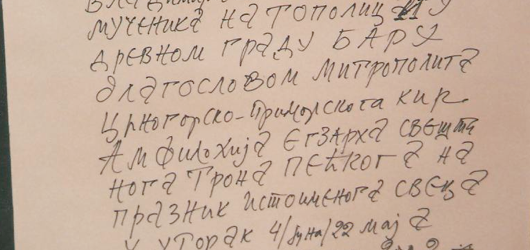 мученика на тополици у
древном граду Бару
благословом митрополита
Црногорско-Приморскога кир
Амфилохија егзарха свешта
нога трона пећкога на
празник истоименога свеца
у уторак 4/јуна/22 маја